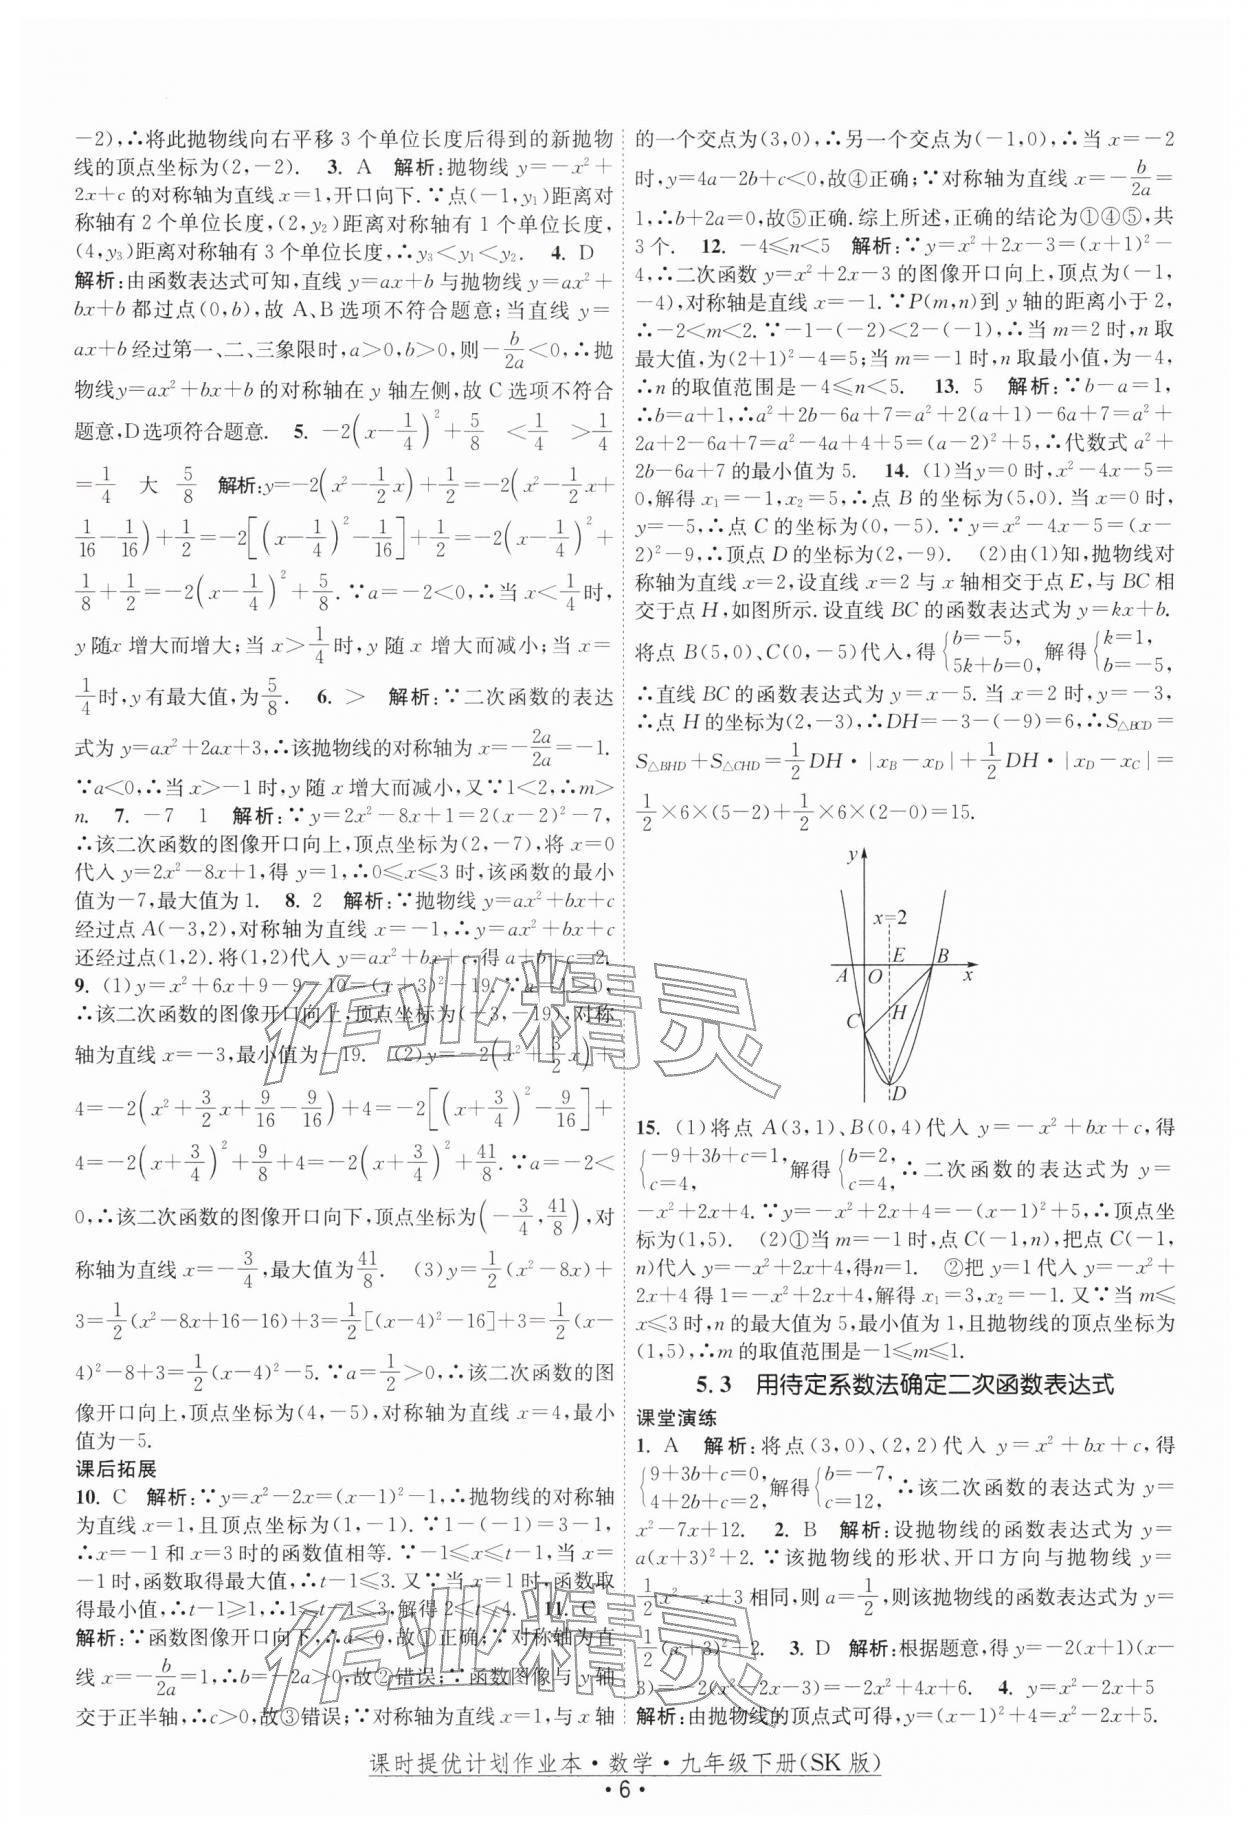 -2),∴将此抛物线向右平移 3 个单位长度后得到的新抛物
线的顶点坐标为(2,-2). 3. A 解析:抛物线 y=-x²+
2x+c 的对称轴为直线 x=1,开口向下.∵点(-1,y₁)距离对
称轴有 2 个单位长度,(2,y₂)距离对称轴有 1 个单位长度,
(4,y₃)距离对称轴有 3 个单位长度,∴y₃<y₁<y₂. 4. D
解析:由函数表达式可知,直线 y=ax+b 与抛物线 y=ax²+
bx+b 都过点(0,b),故 A、B选项不符合题意;当直线 y=
ax+b 经过第一、二、三象限时,a>0,b>0,则-b/2a<0,∴抛
物线y=ax²+bx+b 的对称轴在 y 轴左侧,故 C 选项不符合
题意,D选项符合题意. 5. -2(x-1/4)²+5/8 <1/4 >1/4
=1/4 大 5/8 解析:y=-2(x²-1/2x)+1/2=-2(x²-1/2x+
1/16-1/16)+1/2=-2[(x-1/4)²-1/16]+1/2=-2(x-1/4)²+
1/8+1/2=-2(x-1/4)²+5/8.∵a=-2<0,∴当 x<1/4时,
y 随x 增大而增大;当 x>1/4时,y 随 x 增大而减小;当 x=
1/4时,y有最大值,为5/8. 6. > 解析:∵二次函数的表达
式为 y=ax²+2ax+3,∴该抛物线的对称轴为 x=-2a/2a=-1.
∵a<0,∴当 x>-1时,y随 x 增大而减小,又∵1<2,∴m>
n. 7. -7 1 解析:∵y=2x²-8x+1=2(x-2)²-7,
∴该二次函数的图像开口向上,顶点坐标为(2,-7),将 x=0
代入 y=2x²-8x+1,得 y=1,∴0≤x≤3 时,该函数的最小
值为-7,最大值为 1. 8. 2 解析:∵抛物线 y=ax²+bx+c
经过点 A(-3,2),对称轴为直线 x=-1,∴y=ax²+bx+c
还经过点(1,2).将(1,2)代入 y=ax²+bx+c,得 a+b+c=2.
9. (1)y=x²+6x+9-9-10=(x+3)²-19.∵a=1>0,
∴该二次函数的图像开口向上,顶点坐标为(-3,-19),对称
轴为直线 x=-3,最小值为-19. (2)y=-2(x²+3/2x)+
4=-2(x²+3/2x+9/16-9/16)+4=-2[(x+3/4)²-9/16]+
4=-2(x+3/4)²+9/8+4=-2(x+3/4)²+41/8.∵a=-2<
0,∴该二次函数的图像开口向下,顶点坐标为(-3/4,41/8),对
称轴为直线 x=-3/4,最大值为41/8. (3)y=1/2(x²-8x)+
3=1/2(x²-8x+16-16)+3=1/2[(x-4)²-16]+3=1/2(x-
4)²-8+3=1/2(x-4)²-5.∵a=1/2>0,∴该二次函数的图
像开口向上,顶点坐标为(4,-5),对称轴为直线 x=4,最小
值为-5.
课后拓展
10. C 解析:∵y=x²-2x=(x-1)²-1,∴抛物线的对称轴
为直线 x=1,且顶点坐标为(1,-1).∵1-(-1)=3-1,
∴x=-1 和 x=3 时的函数值相等.∵-1≤x≤t-1,当 x=
-1时,函数取得最大值,∴t-1≤3.又∵当 x=1 时,函数取
得最小值,∴t-1≥1,∴1≤t-1≤3,解得 2≤t≤4. 11. C
解析:∵函数图像开口向下,∴a<0,故①正确;∵对称轴为直
线 x=-b/2a=1,∴b=-2a>0,故②错误;∵函数图像与 y 轴
交于正半轴,∴c>0,故③错误;∵对称轴为直线 x=1,与 x 轴
的一个交点为(3,0),∴另一个交点为(-1,0),∴当 x=-2
时,y=4a-2b+c<0,故④正确;∵对称轴为直线 x=-b/2a=
1,∴b+2a=0,故⑤正确.综上所述,正确的结论为①④⑤,共
3个. 12. -4≤n<5 解析:∵y=x²+2x-3=(x+1)²-
4,∴二次函数 y=x²+2x-3 的图像开口向上,顶点为(-1,
-4),对称轴是直线 x=-1.∵P(m,n)到 y 轴的距离小于 2,
∴-2<m<2.∵-1-(-2)<2-(-1),∴当 m=2 时,n 取
最大值,为(2+1)²-4=5;当 m=-1 时,n 取最小值,为-4,
∴n 的取值范围是-4≤n<5. 13. 5 解析:∵b-a=1,
∴b=a+1,∴a²+2b-6a+7=a²+2(a+1)-6a+7=a²+
2a+2-6a+7=a²-4a+4+5=(a-2)²+5,∴代数式 a²+
2b-6a+7 的最小值为 5. 14. (1)当y=0 时,x²-4x-5=
0,解得 x₁=-1,x₂=5,∴点 B 的坐标为(5,0).当 x=0 时,
y=-5,∴点 C 的坐标为(0,-5).∵y=x²-4x-5=(x-
2)²-9,∴顶点 D 的坐标为(2,-9). (2)由(1)知,抛物线对
称轴为直线 x=2,设直线 x=2 与 x 轴相交于点 E,与 BC 相
交于点 H,如图所示.设直线 BC 的函数表达式为 y=kx+b.
将点 B(5,0)、C(0,-5)代入,得{b=-5, 5k+b=0, 解得{k=1, b=-5,
∴直线 BC 的函数表达式为 y=x-5.当 x=2 时,y=-3,
∴点 H 的坐标为(2,-3),∴DH=-3-(-9)=6,∴S△BCD=
S△BHD+S△CHD=1/2DH·|xB-xD|+1/2DH·|xD-xC|=
1/2×6×(5-2)+1/2×6×(2-0)=15.
y
x=2
A O E B x
C H
D
15. (1)将点 A(3,1)、B(0,4)代入 y=-x²+bx+c,得
{-9+3b+c=1, c=4, 解得{b=2, c=4, ∴二次函数的表达式为 y=
-x²+2x+4.∵y=-x²+2x+4=-(x-1)²+5,∴顶点坐
标为(1,5). (2)①当 m=-1时,点 C(-1,n),把点 C(-1,
n)代入 y=-x²+2x+4,得n=1. ②把 y=1代入 y=-x²+
2x+4 得 1=-x²+2x+4,解得 x₁=3,x₂=-1.又∵当 m≤
x≤3 时,n 的最大值为 5,最小值为 1,且抛物线的顶点坐标为
(1,5),∴m 的取值范围是-1≤m≤1.
5.3 用待定系数法确定二次函数表达式
课堂演练
1. A 解析:将点(3,0)、(2,2)代入 y=x²+bx+c,得
{9+3b+c=0, 4+2b+c=2, 解得{b=-7, c=12, ∴该二次函数的表达式为 y=
x²-7x+12. 2. B 解析:设抛物线的函数表达式为 y=
a(x+3)²+2.∵该抛物线的形状、开口方向与抛物线 y=
1/2x²-x+3 相同,则 a=1/2,则该抛物线的函数表达式为 y=
1/2(x+3)²+2. 3. D 解析:根据题意,得 y=-2(x+1)(x-
3)=-2(x²-2x-3)=-2x²+4x+6. 4. y=x²-2x+5
解析:由抛物线的顶点式可得,y=(x-1)²+4=x²-2x+5.
作业精灵
作业精灵
课时提优计划作业本·数学·九年级下册(SK 版)
·6·